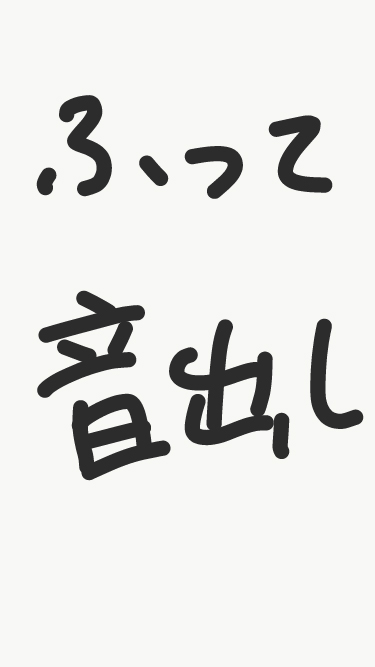 ふって
音出し